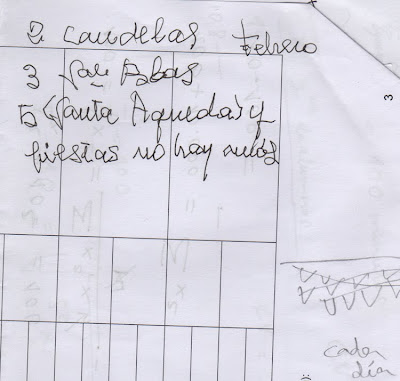 2 Candelas Febrero
3 San Blas
5 Santa Aguedas y
fiestas no hay más
3
cada
día